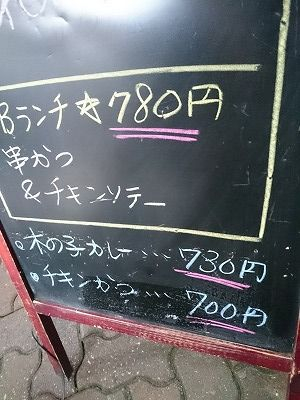 Bランチ☆780円
串かつ
&チキンソテー
。木の子カレー…730円
・チキンかつ…700円